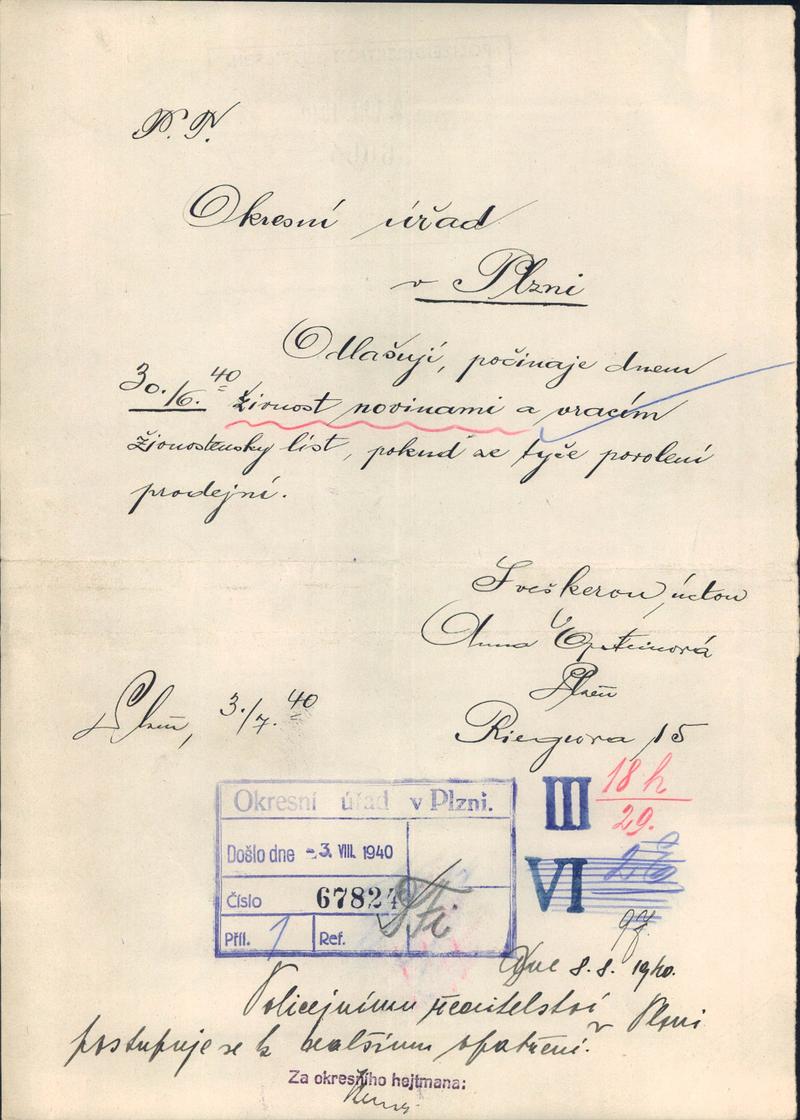 P. T.
Okresní úřad
v Plzni
Odlašuji, počínaje dnem
30./6. 40 živnost novinami a vracím
živnostensky list, pokud se tyče povolení
prodejní.
S veškerou úctou
Anna
Plzeň
Riegrova 15
Plzeň, 3./7. 40
Okresní úřad v Plzni.
Došlo dne -3. VIII. 1940
Číslo 67824
Příl. 1 Ref.
III 18 h
29.
VI
Dne 8.8. 1940.
Policejnímu ředitelství
v Plzni
postupuje se k dalšímu opatření.
Za okresního hejtmana: